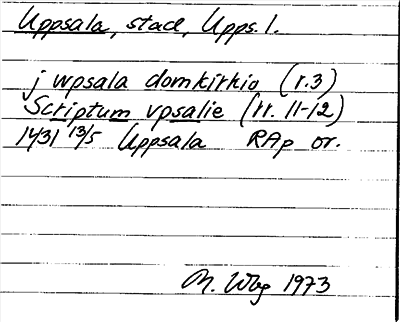 Uppsala, stad, Upps. l.
j wpsala domkirkio (r. 3)
Scriptum vpsalie (rr. 11-12)
1431 13/5 Uppsala RAp or.
M. Wbg 1973